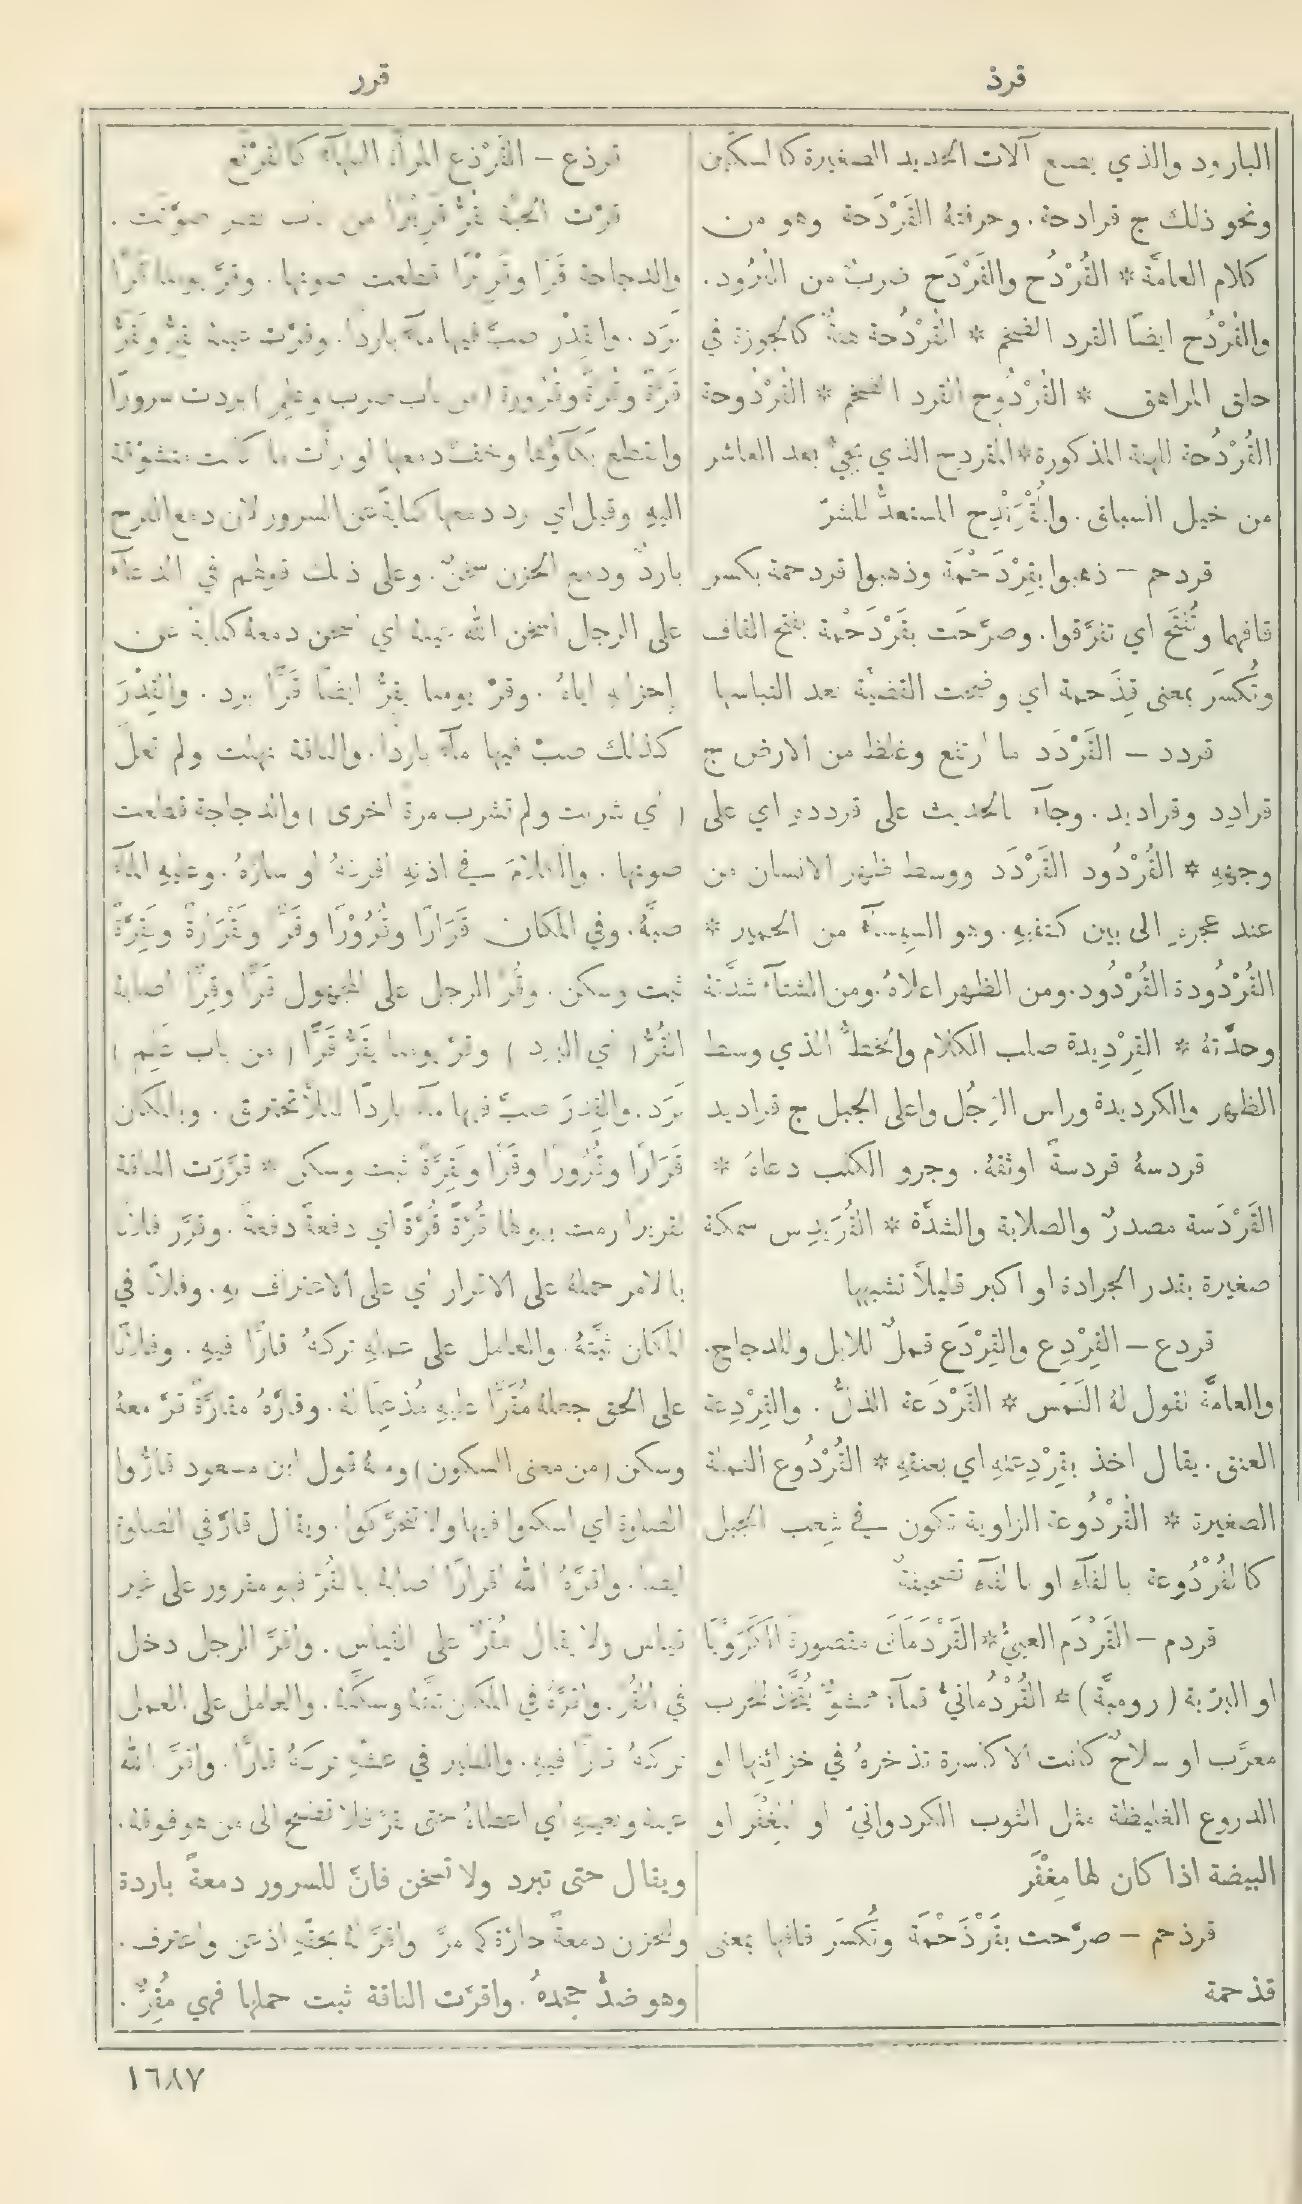 قرذ
قرر
البارود والذي يصنع آلات الحديد الصغيرة كالسكّين
ونحو ذلك ج قرادحة. وحرفتهُ القَرْدَحة وهو من
كلام العامَّة * القُرْدُح والقَرْدَح ضربٌ من البُرُود.
والقُرْدُح ايضًا القرد الضخم * القُرْدُحة هنةٌ كالجوزة في
حلق المراهق * القُرْدُوح القرد الضخم * القُرْدُوحة
القُرْدُحة للهنة المذكورة * المقردِح الذي يجيُّ بعد العاشر
من خيل السباق. والمُقْرَنْدِح المستعدُّ للشرّ
قردحم – ذهبوا بقِرْدَحْمَة وذهبوا قردحمة بكسر
قافهما وتُفتَح اي تفرَّقوا. وصرَّحَت بقَرْدَحْمة بفتح القاف
وتُكسَر بمعنى قِذَحمة اي وضحت القضيَّة بعد التباسها
قردد – القَرْدَد ما ارتفع وغلظ من الارض ج
قرادِد وقراديد. وجآء بالحديث على قرددهِ اي على
وجههِ * القُرْدُود القَرْدَد ووسط ظهر الانسان من
عند عجزهِ الى بين كتفيهِ. وهو السِيسآء من الحمير *
القُرْدُودة القُرْدُود. ومن الظهر اعلاهُ. ومن الشتآء شدَّتهُ
وحدَّتهُ * القِرْدِيدة صلب الكلام والخطُّ الذي وسط
الظهر والكرديدة وراس الرَجُل واعلى الجبل ج قراديد
قردسهُ قردسةً اوثقهُ. وجرو الكلب دعاهُ *
القَرْدَسة مصدرٌ والصلابة والشدَّة * القُرَيدِس سمكة
صغيرة بقدر الجرادة او اكبر قليلًا تشبهها
قردع – القِرْدِع والقِرْدَع قملٌ للابل وللدجاج.
والعامَّة تقول لهُ النَمَس * القَرْدَعة الذلُّ. والقِرْدِعة
العنق. يقال اخذ بقِرْدِعتهِ اي بعنقهِ * القُرْدُوع النملة
الصغيرة * القُرْدُوعة الزاوية تكون في شِعب الجبل
كالفُرْدُوعة بالفآء او بالفآء تصحيفةٌ
قردم – القَرْدَم العييُّ * القَرْدَمَانَى مقصورةً الكَرَوْيَا
او البرّية (روميَّة) * القُرْدُمانيُّ قبآء محشوٌّ يُتَّخَذ للحرب
معرَّب او سلاحٌ كانت الاكاسرة تدخرهُ في خزائنها او
الدروع الغليظة مثل الثوب الكردوانيّ او المِغْفَر او
البيضة اذا كان لها مِغْفَر
قرذحم – صرَّحت بقَرْذَحْمَة وتُكسَر قافها بمعنى
قذحمة
قرذع – القَرْذَع المرأة البلهآء كالقَرْثَع
قرَّت الحيَّة تقرُّ قَرِيْرًا من باب صوَّتت.
والدجاجة قَرًّا وقَرِيْرًا قطعت صوتها. وقرَّ يومنا قَرًّا
بَرَد. والقِدْر صبَّ فيها مآء باردًا. وقرَّت عينهُ تقِرُّ وتَقَرُّ
قَرَّةً وقُرَّةً وقُرُورة (من باب ضرب وعلِم) بردت سرورًا
وانقطع بكآؤُها وجفَّ دمعها او رأَت ما كانت متشوّقة
اليهِ وقيل اي برد دمعها كنايةً عن السرور لان دمع الفرح
باردٌ ودمع الحزن سخنٌ. وعلى ذلك قولهم في الدعآء
على الرجل اسخن الله عينهُ اي اسخن دمعهُ كناية عن
إحزانهِ اياهُ. وقرَّ يومنا يقرُّ ايضًا قَرًّا برد. والقِدْرَ
كذلك صبَّ فيها مآء باردًا. والناقة نهلت ولم تعلَّ
(اي شربت ولم تشرب مرة اخرى) والدجاجة قطعت
صوتها. والكلامَ في اذنهِ افرغهُ او سارَّهُ. وعليهِ المآء
صبَّهُ. وفي المكان قَرَارًا وقُرُوْرًا وقَرًّا وتَقْرَارةً وتَقِرَّةً
ثبت وسكن. وقُرَّ الرجل على المجهول قَرًّا وقِرًّا اصابهُ
القُرُّ (اي البرد) وقرَّ يومنا يقَرُّ قَرًّا (من باب عَلِم)
بَرَد. والقِدرَ صبَّ فيها مآء باردًا لئلَّا تحترق. وبالمكان
قَرَارًا وقُرُورًا وقَرًّا وتَقِرَّةً ثبت وسكن * قرَّرت الناقة
تقريرًا رمت ببولها قُرَّةً قُرَّةً اي دفعةً دفعةً. وقرَّر فلانًا
بالامر حملهُ على الاقرار اي على الاعتراف بهِ. وفلانًا في
المكان ثبَّتهُ. والعامل على عملهِ تركهُ قارًّا فيهِ. وفلانًا
على الحق جعلهُ مُقَرًّا عليهِ مُذعِنًا لهُ. وقارَّهُ مقارَّةً قرَّ معهُ
وسكن (من معنى السكون) ومنهُ قول ابن مسعود قارُّوا
الصلوة اي اسكنوا فيها ولا تتحرَّكوا. ويقال قارَّ في الصلوة
ايضًا. واقرَّهُ الله اقرارًا اصابهُ بالقُرّ فهو مقرور على غير
قياس ولا يقال مُقَرٌّ على القياس. واقرَّ الرجل دخل
في القُرّ. واقرَّهُ في المكان ثبَّتهُ وسكَّنهُ. والعامل على العمل
تركهُ قارًّا فيهِ. والطير في عشّهِ تركهُ قارًّا. واقرَّ الله
عينهُ وبعينهِ اي اعطاهُ حتى تقرَّ فلا تطمح الى من هو فوقهُ.
ويقال حتى تبرد ولا تسخن فانَّ للسرور دمعةً باردة
وللحزن دمعةً حارَّة كما مرَّ. واقرَّ لهُ بحقّهِ اذعن واعترف.
وهو ضدُّ جحدهُ. واقرَّت الناقة ثبت حملها فهي مُقِرٌّ.
١٦٨٧